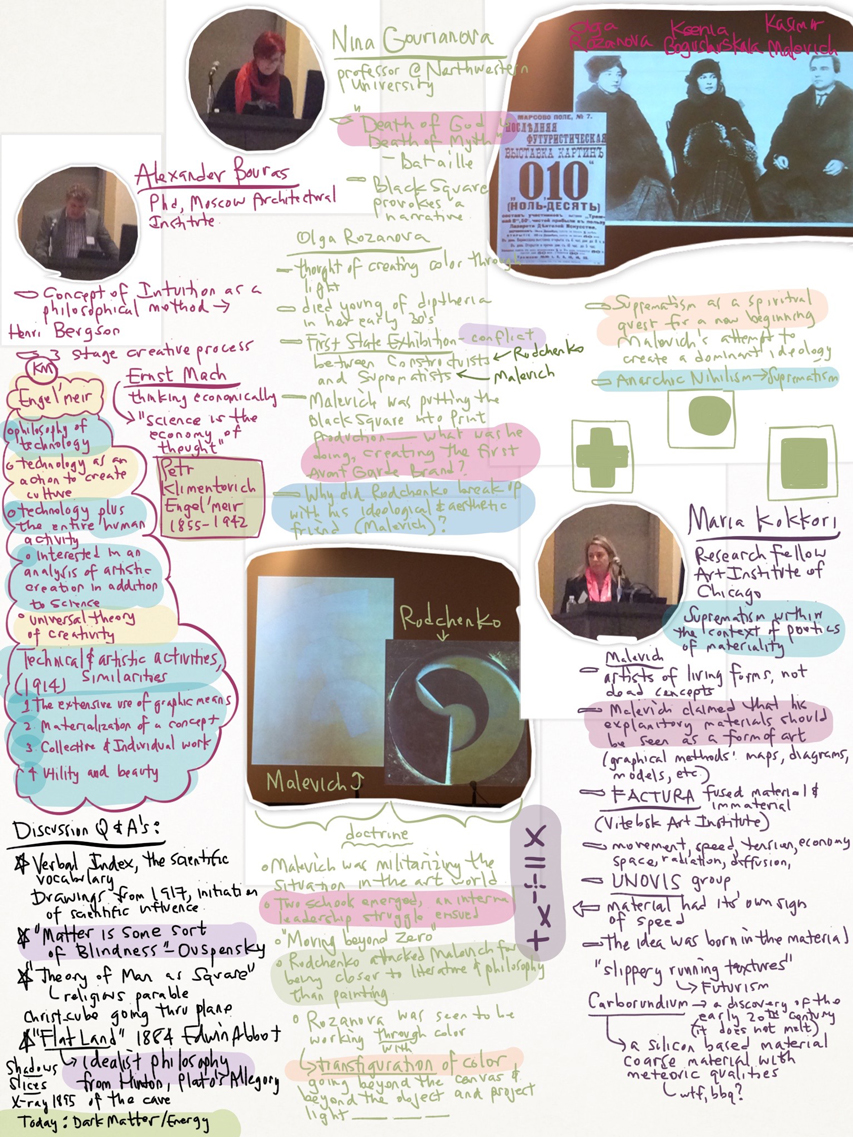 Nina Gourianova
professor @ Northwestern
University
"Death of God is
Death of Myth"
- Bataille
Black Square
provokes a
narrative
Olga
Rozanova
Ksenia
Boguslavskaia
Kasimir
Malevich
МАРСОВО ПОЛЕ, № 7.
ПОСЛѢДНЯЯ
ФУТУРИСТИЧЕСКАЯ
ВЫСТАВКА КАРТИНЪ
"0,10"
(НОЛЬ-ДЕСЯТЬ)
Alexander Bouras
Phd, Moscow Architectural
Institute
Concept of Intuition as a
philosophical method →
Henri Bergson
3 stage creative process
KM
Ernst Mach
thinking economically
"science is the
economy of
thought"
Petr
Klimentovich
Engel'meir
1855-1942
Engel'meir
philosophy of
technology
technology as an
action to create
culture
technology plus
the entire human
activity
interested in an
analysis of artistic
creation in addition
to science
universal theory
of creativity
Technical & artistic activities,
(1914) Similarities
1 The extensive use of graphic means
2 Materialization of a concept
3 Collective & Individual work
4 Utility and beauty
Olga Rozanova
thought of creating color through
light
died young of diptheria
in her early 30's
First State Exhibition - conflict
between Constructivists ← Rodchenko
and Suprematists ← Malevich
Malevich was putting the
Black Square into Print
Production — what was he
doing, creating the first
Avant Garde Brand?
Why did Rodchenko break up
with his ideological & aesthetic
friend (Malevich)?
Suprematism as a spiritual
quest for a new beginning
Malevich's attempt to
create a dominant ideology
Anarchic Nihilism → Suprematism
Rodchenko
Malevich
Maria Kokkori
Research fellow
Art Institute of
Chicago
Suprematism within
the context of poetics
of materiality
Malevich
artists of living forms, not
dead concepts
Malevich claimed that his
explanitory materials should
be seen as a form of art
(graphical methods: maps, diagrams,
models, etc)
FACTURA fused material &
immaterial
(Vitebsk Art Institute)
movement, speed, tension, economy
space, radiation, diffusion,
UNOVIS group
material had its own sign
of speed
The idea was born in the material
"slippery running textures"
Futurism
Carborundium → a discovery of the
early 20th century
(it does not melt)
a silicon based material
coarse material with
meteoric qualities
wtf, bbq?
doctrine
Malevich was militarizing the
situation in the art world
Two schools energed, an internal
leadership struggle ensued
"Moving beyond Zero"
Rodchenko attacked Malevich for
being closer to literature & philosophy
than painting
Rozanova was seen to be
working through color
with
transfiguration of color
going beyond the canvas &
beyond the object and project
light
Discussion Q & A's:
Verbal Index, the scientific
vocabulary
Drawings from 1917, initiation
of scientific influence
"Matter is some sort
of Blindness" - Ouspensky
"Theory of Man as Square"
religious parable
Christ cube going thru plane
"Flat Land" 1884 Edwin Abbot
Idealist philosophy
from Hinton, Plato's Allegory
of the cave
Shadows
Slices
X-ray 1895
Today: Dark Matter/Energy